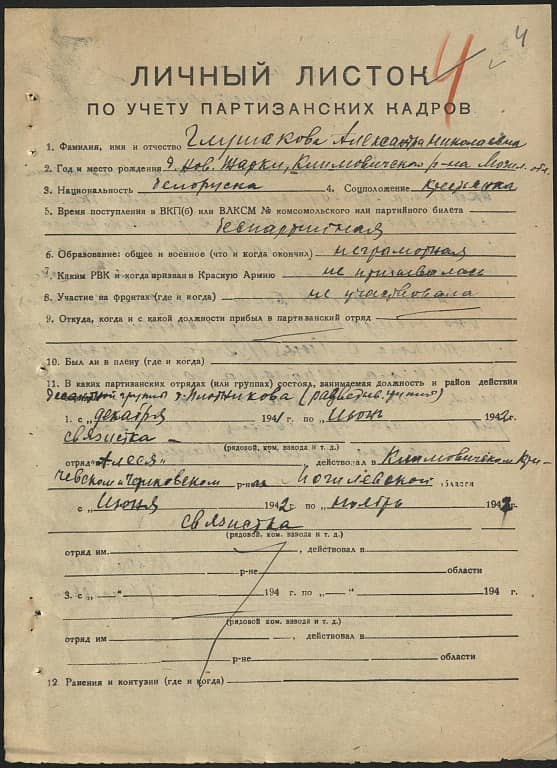 4
4
ЛИЧНЫЙ ЛИСТОК
ПО УЧЕТУ ПАРТИЗАНСКИХ КАДРОВ
1. Фамилия, имя и отчество Глушакова Александра Николаевна
2. Год и место рождения д. Нов. Шарки, Климовичского р-на Могил. обл.
3. Национальность белоруска 4. Соцположение крестьянка
5. Время поступления в ВКП(б) или ВЛКСМ № комсомольского или партийного билета
беспартийная
6. Образование: общее и военное (что и когда окончил) неграмотная
7. Каким РВК и когда призван в Красную Армию не призывалась
8. Участие на фронтах (где и когда) не участвовала
9. Откуда, когда и с какой должности прибыл в партизанский отряд
10. Был ли в плену (где и когда)
11. В каких партизанских отрядах (или группах) состоял, занимаемая должность и район действия
группы т. Плотникова (разведыв. группа)
1. с „декабря 1941 г. по „Июнь 1942 г.
связистка
(рядовой, ком. взвода и т. д.)
отряд "Алеся" действовал в Климовичском Кри-
чевском и Чериковском р-нах Могилевской области
с „Июня 1942 г. по „ноябрь 194 г.
связистка
(рядовой, ком. взвода и т. д.)
отряд им. , действовал в
р-не области
3. с „—“ 194 г. по „—“ 194 г.
(рядовой ком. взвода и т. д.)
отряд им. , действовал в
р-не области
12. Ранения и контузии (где и когда)